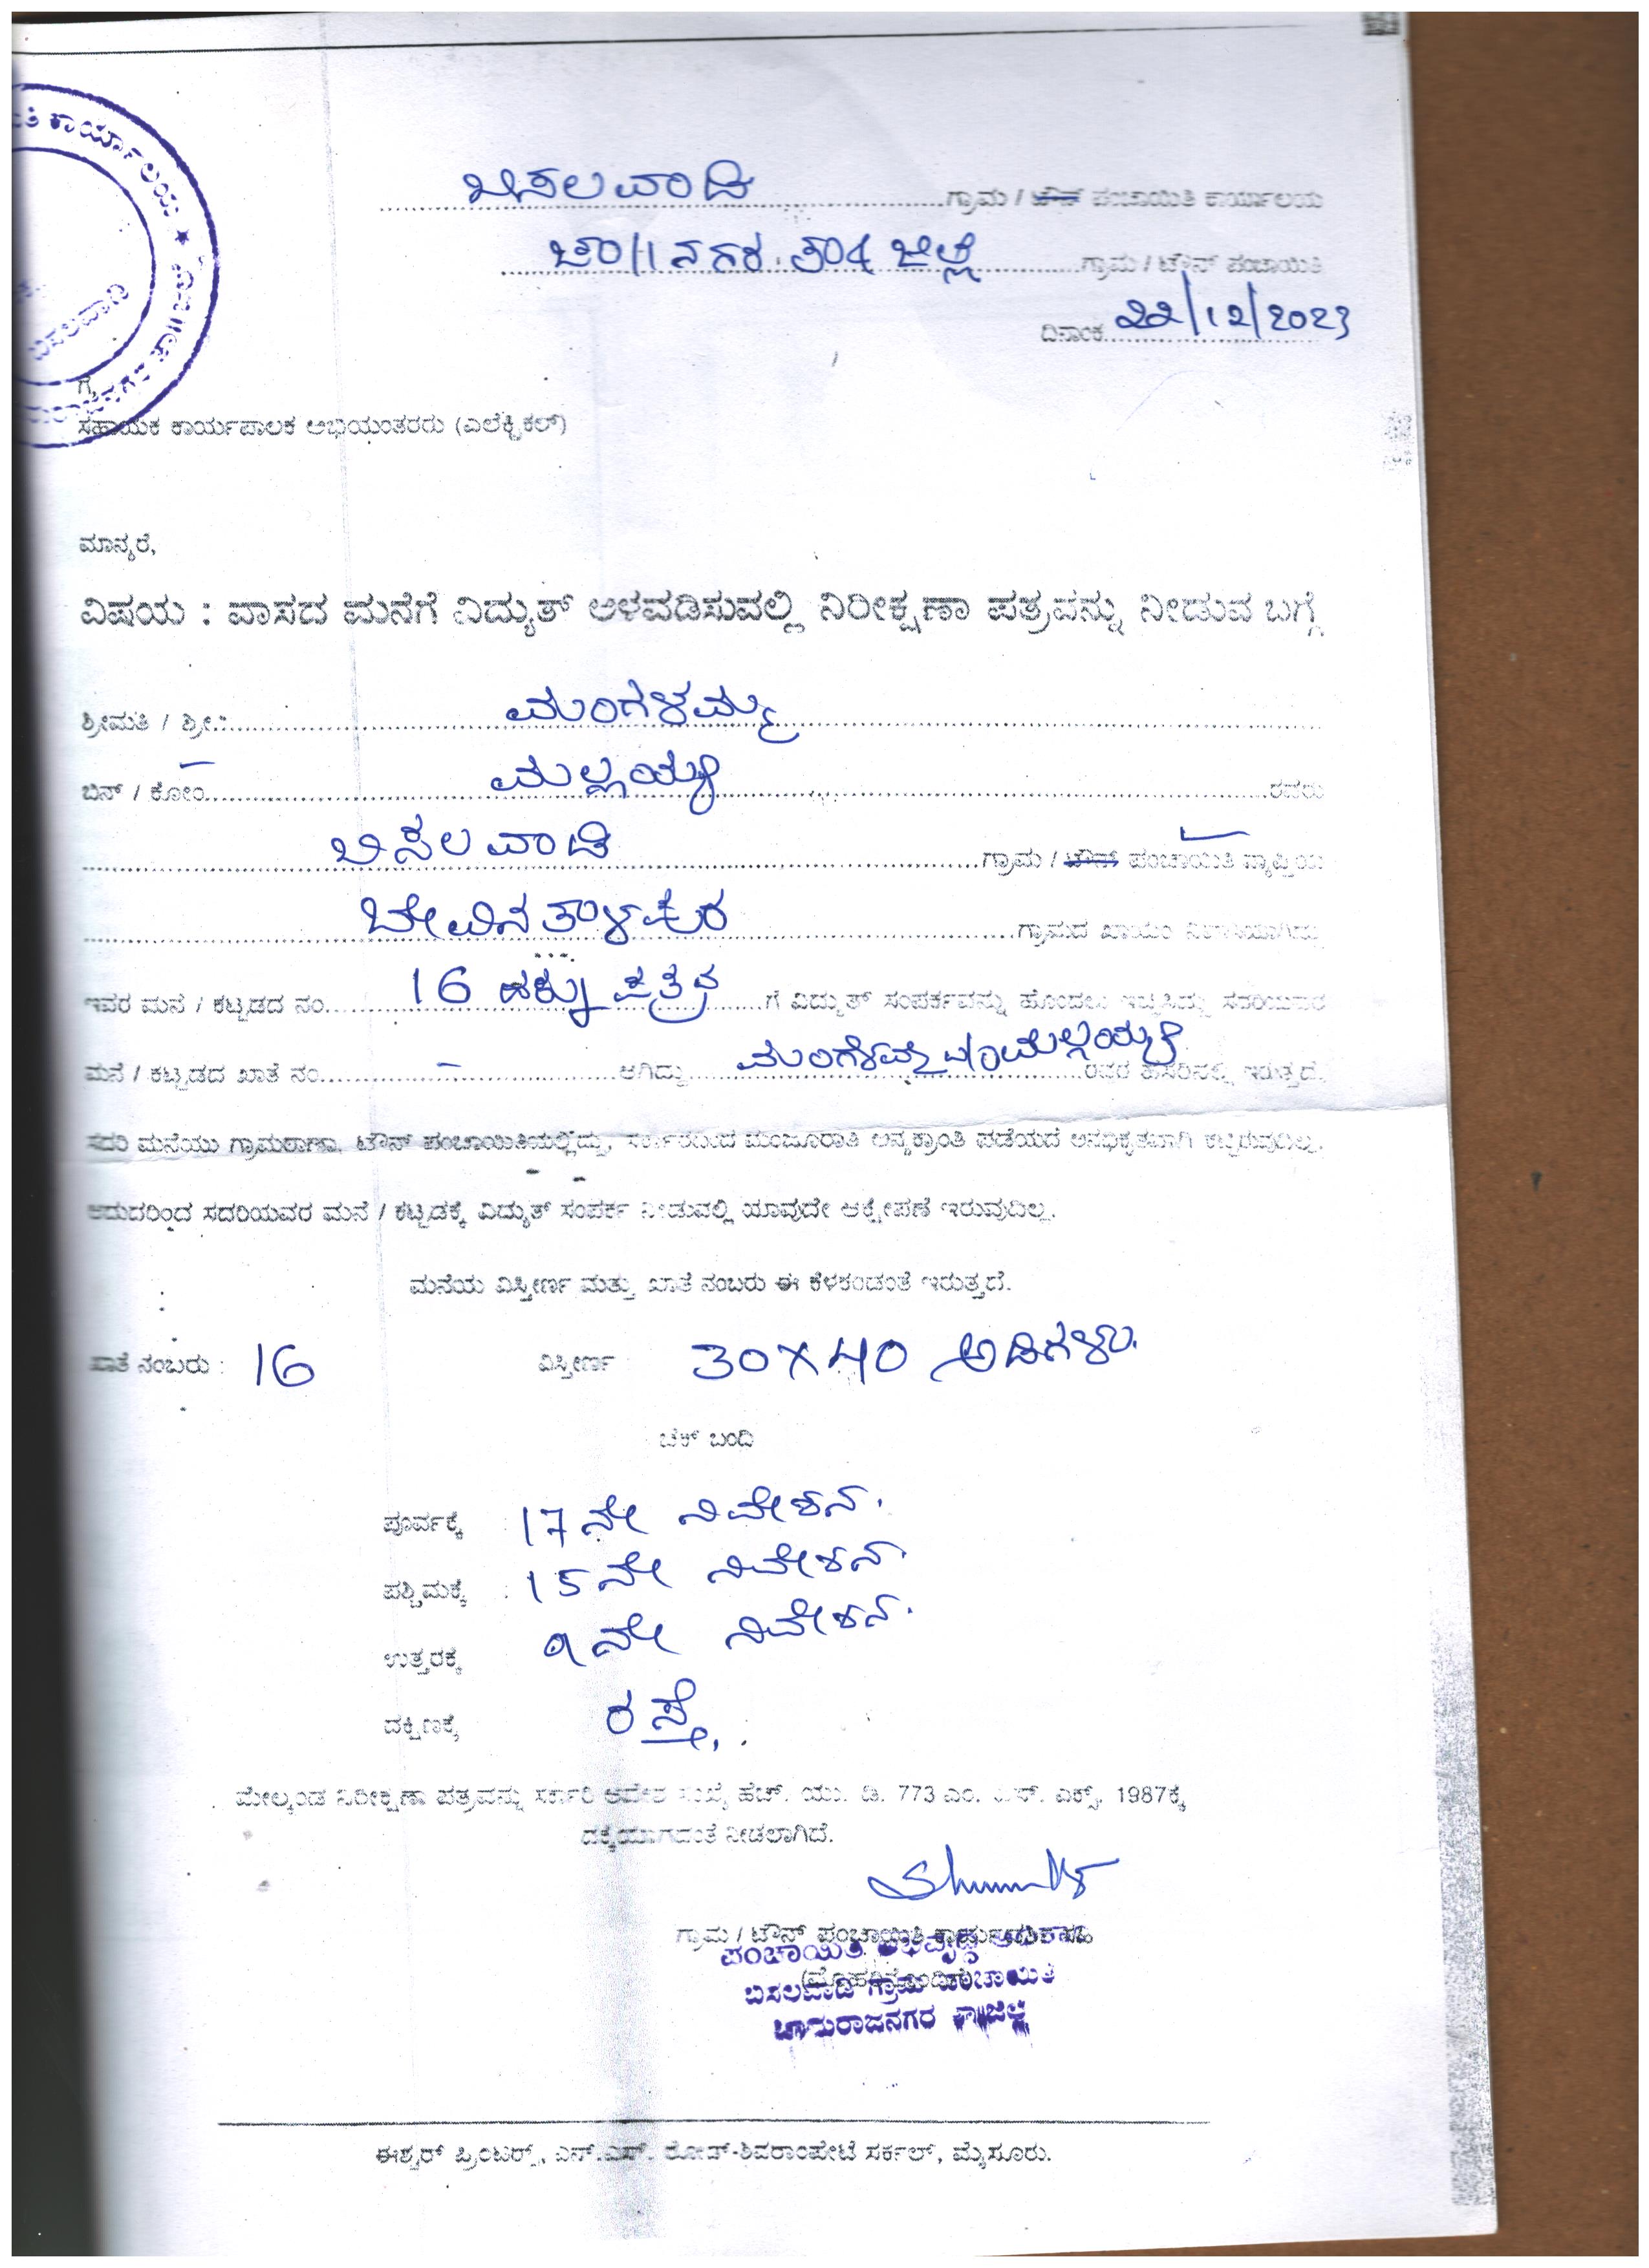 ಕಾರ್ಯಾಲಯ ★
ಬಿಸಲವಾಡಿ
ಬಿಸಲವಾಡಿ ಗ್ರಾಮ / ಟೌನ್ ಪಂಚಾಯಿತಿ ಕಾರ್ಯಾಲಯ
ಚಾ||ನಗರ. ತಾ|| ಜಿಲ್ಲೆ ಗ್ರಾಮ / ಟೌನ್ ಪಂಚಾಯಿತಿ
ದಿನಾಂಕ 22/12/2023
ಗೆ,
ಸಹಾಯಕ ಕಾರ್ಯಪಾಲಕ ಅಭಿಯಂತರರು (ಎಲೆಕ್ಟ್ರಿಕಲ್)
ಮಾನ್ಯರೆ,
ವಿಷಯ : ವಾಸದ ಮನೆಗೆ ವಿದ್ಯುತ್ ಅಳವಡಿಸುವಲ್ಲಿ ನಿರೀಕ್ಷಣಾ ಪತ್ರವನ್ನು ನೀಡುವ ಬಗ್ಗೆ
ಶ್ರೀಮತಿ / ಶ್ರೀ: ಮಂಗಳಮ್ಮ
ಬಿನ್ / ಕೋಂ ಮಲ್ಲಯ್ಯ ರವರು
ಬಿಸಲವಾಡಿ ಗ್ರಾಮ / ಟೌನ್ ಪಂಚಾಯಿತಿ ವ್ಯಾಪ್ತಿಯ
ಬೇವಿನತಾಳಪುರ ಗ್ರಾಮದ ಖಾಯಂ ನಿವಾಸಿಯಾಗಿದ್ದು
ಇವರ ಮನೆ / ಕಟ್ಟಡದ ನಂ. 16 ಹಕ್ಕು ಪತ್ರ ಗೆ ವಿದ್ಯುತ್ ಸಂಪರ್ಕವನ್ನು ಹೊಂದಲು ಇಚ್ಛಿಸಿದ್ದು ಸದರಿಯವರ
ಮನೆ / ಕಟ್ಟಡದ ಖಾತೆ ನಂ. – ಆಗಿದ್ದು ಮಂಗಳಮ್ಮ ಮಲ್ಲಯ್ಯ ರವರ ಹೆಸರಿನಲ್ಲಿ ಇರುತ್ತದೆ.
ಸದರಿ ಮನೆಯು ಗ್ರಾಮಠಾಣಾ, ಟೌನ್ ಪಂಚಾಯಿತಿಯಲ್ಲಿದ್ದು, ಸರ್ಕಾರದಿಂದ ಮಂಜೂರಾತಿ ಅನ್ಯಕ್ರಾಂತಿ ಪಡೆಯದೆ ಅನಧಿಕೃತವಾಗಿ ಕಟ್ಟಿರುವುದಿಲ್ಲ.
ಆದುದರಿಂದ ಸದರಿಯವರ ಮನೆ / ಕಟ್ಟಡಕ್ಕೆ ವಿದ್ಯುತ್ ಸಂಪರ್ಕ ನೀಡುವಲ್ಲಿ ಯಾವುದೇ ಆಕ್ಷೇಪಣೆ ಇರುವುದಿಲ್ಲ.
ಮನೆಯ ವಿಸ್ತೀರ್ಣ ಮತ್ತು ಖಾತೆ ನಂಬರು ಈ ಕೆಳಕಂಡಂತೆ ಇರುತ್ತದೆ.
ಖಾತೆ ನಂಬರು : 16 ವಿಸ್ತೀರ್ಣ 30X40 ಅಡಿಗಳು.
ಚೆಕ್ ಬಂದಿ
ಪೂರ್ವಕ್ಕೆ : 17ನೇ ನಿವೇಶನ.
ಪಶ್ಚಿಮಕ್ಕೆ : 15ನೇ ನಿವೇಶನ.
ಉತ್ತರಕ್ಕೆ 9ನೇ ನಿವೇಶನ.
ದಕ್ಷಿಣಕ್ಕೆ ರಸ್ತೆ.
ಮೇಲ್ಕಂಡ ನಿರೀಕ್ಷಣಾ ಪತ್ರವನ್ನು ಸರ್ಕಾರಿ ಆದೇಶ ಸಂಖ್ಯೆ ಹೆಚ್. ಯು. ಡಿ. 773 ಎಂ. ಎಕ್ಸ್. 1987ಕ್ಕೆ
ದಕ್ಕೆಯಾಗದಂತೆ ನೀಡಲಾಗಿದೆ.
ಗ್ರಾಮ / ಟೌನ್ ಪಂಚಾಯಿತಿ ಸಹಿ
(ಮೊಹರಿನೊಂದಿಗೆ)
ಪಂಚಾಯಿತಿ ಅಭಿವೃದ್ಧಿ ಅಧಿಕಾರಿ
ಬಿಸಲವಾಡಿ ಗ್ರಾಮ ಪಂಚಾಯಿತಿ
ಚಾಮರಾಜನಗರ ತಾ||ಜಿಲ್ಲೆ
ಈಶ್ವರ್ ಪ್ರಿಂಟರ್ಸ್, ಎನ್.ಎಸ್. ರೋಡ್-ಶಿವರಾಂಪೇಟೆ ಸರ್ಕಲ್, ಮೈಸೂರು.